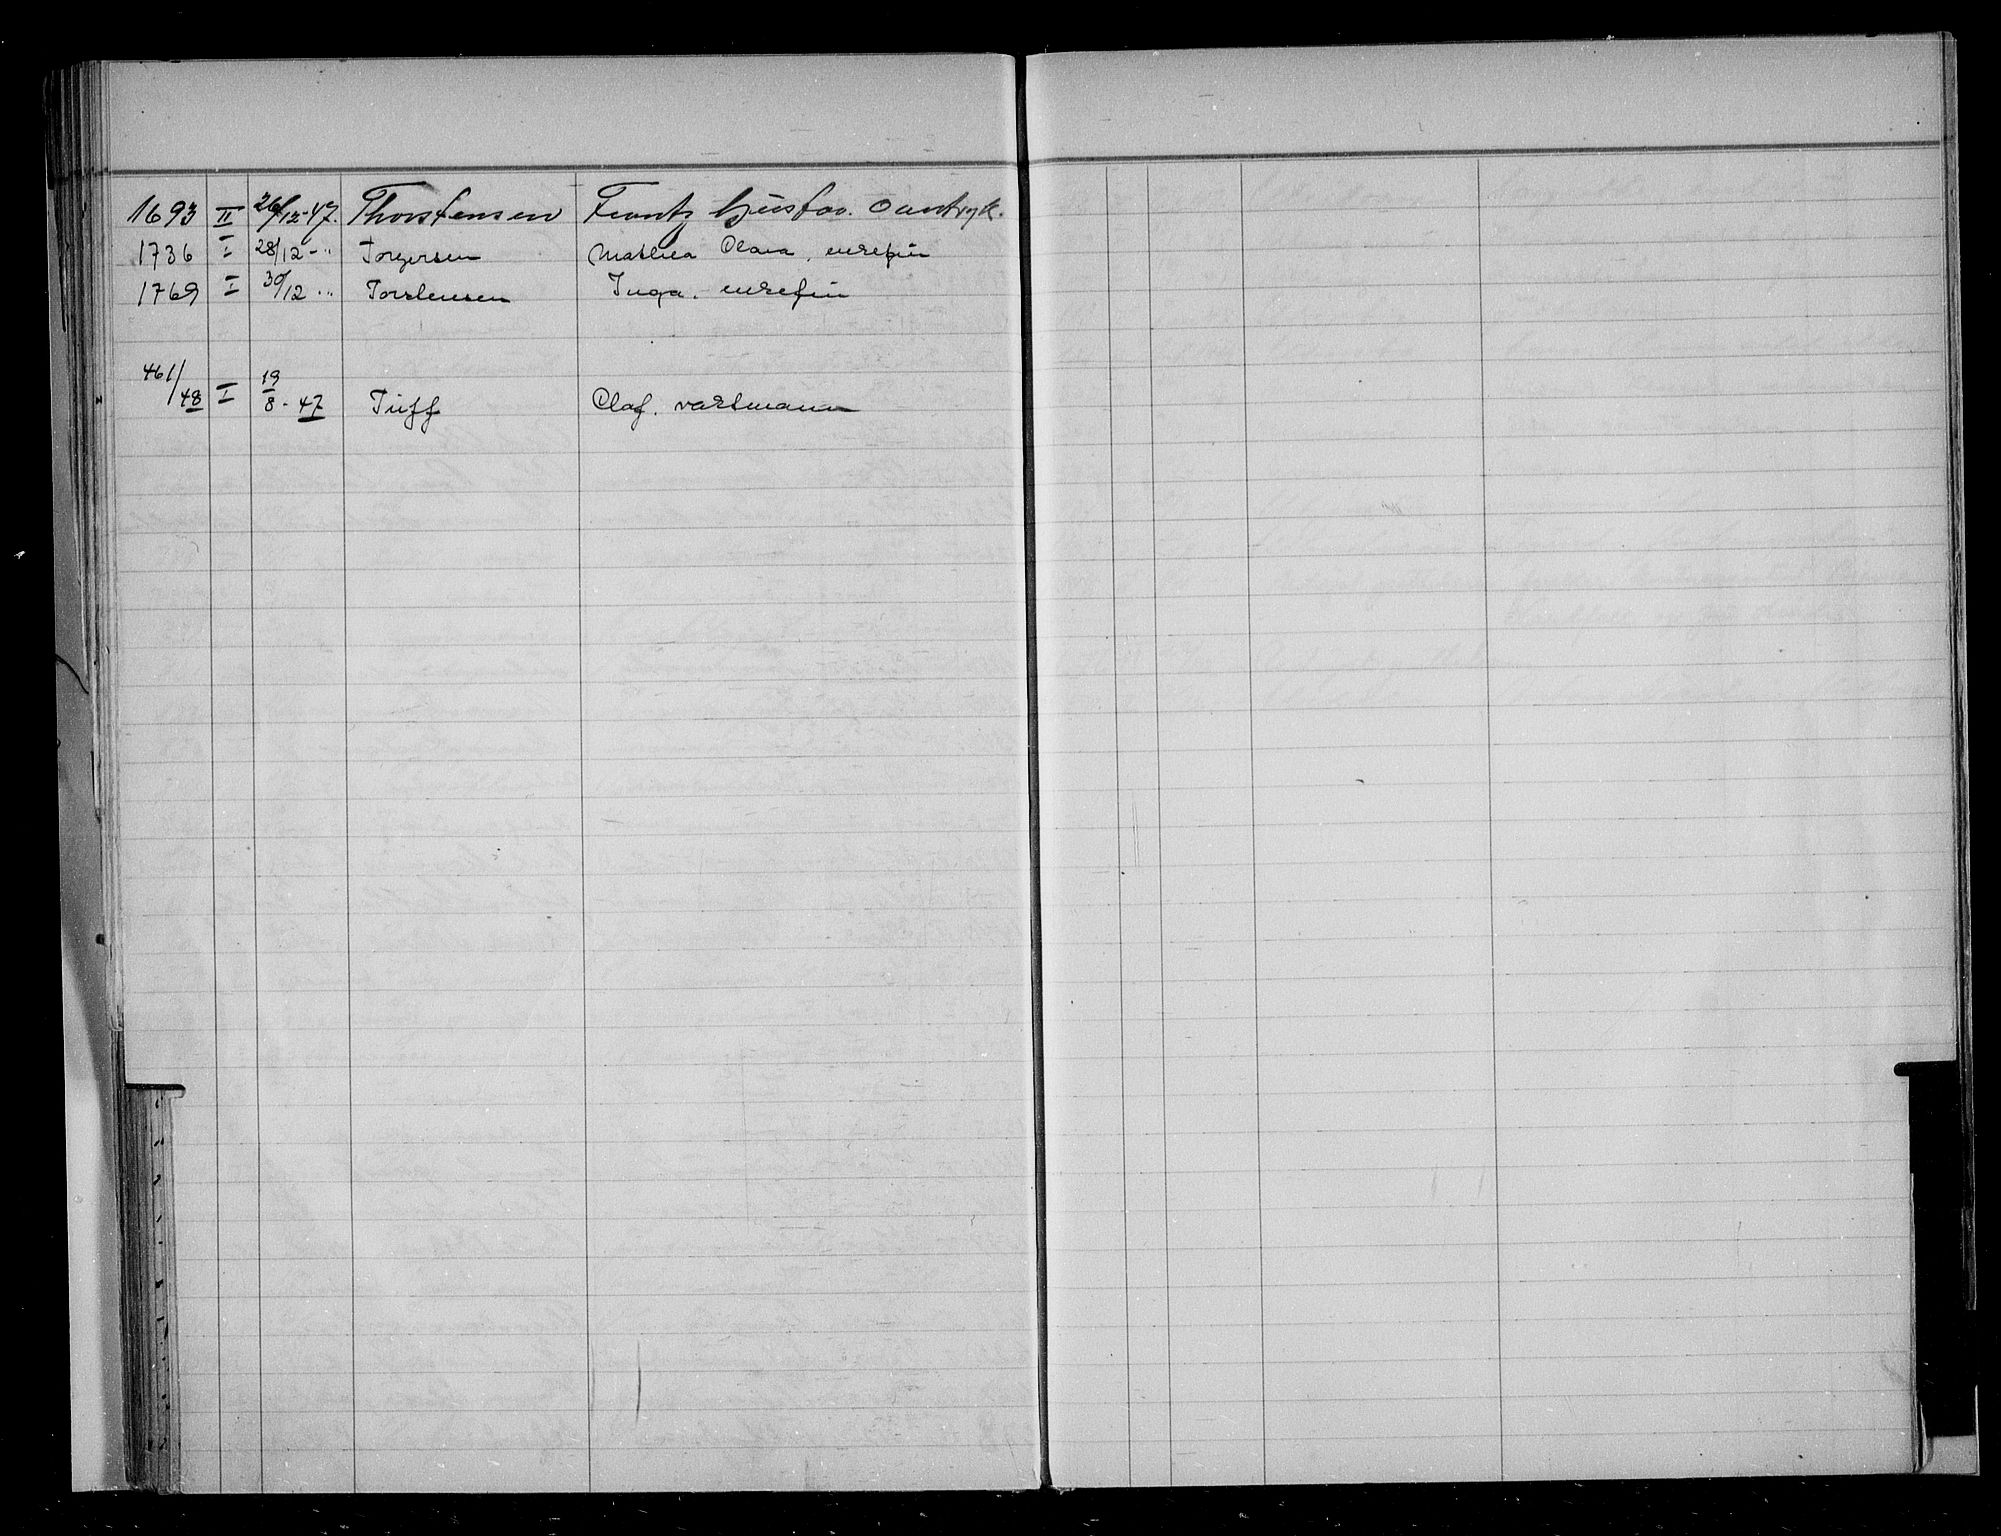 1693 II 26/12-47. Thorstensen Frantz Gustav.
1736 I 28/12-" Torgersen Mathea Clara, enkefru
1769 I 30/12 " Torstensen Inga. enkefru
461/48 I 19/8-47 Tuff Olaf. vaktmann